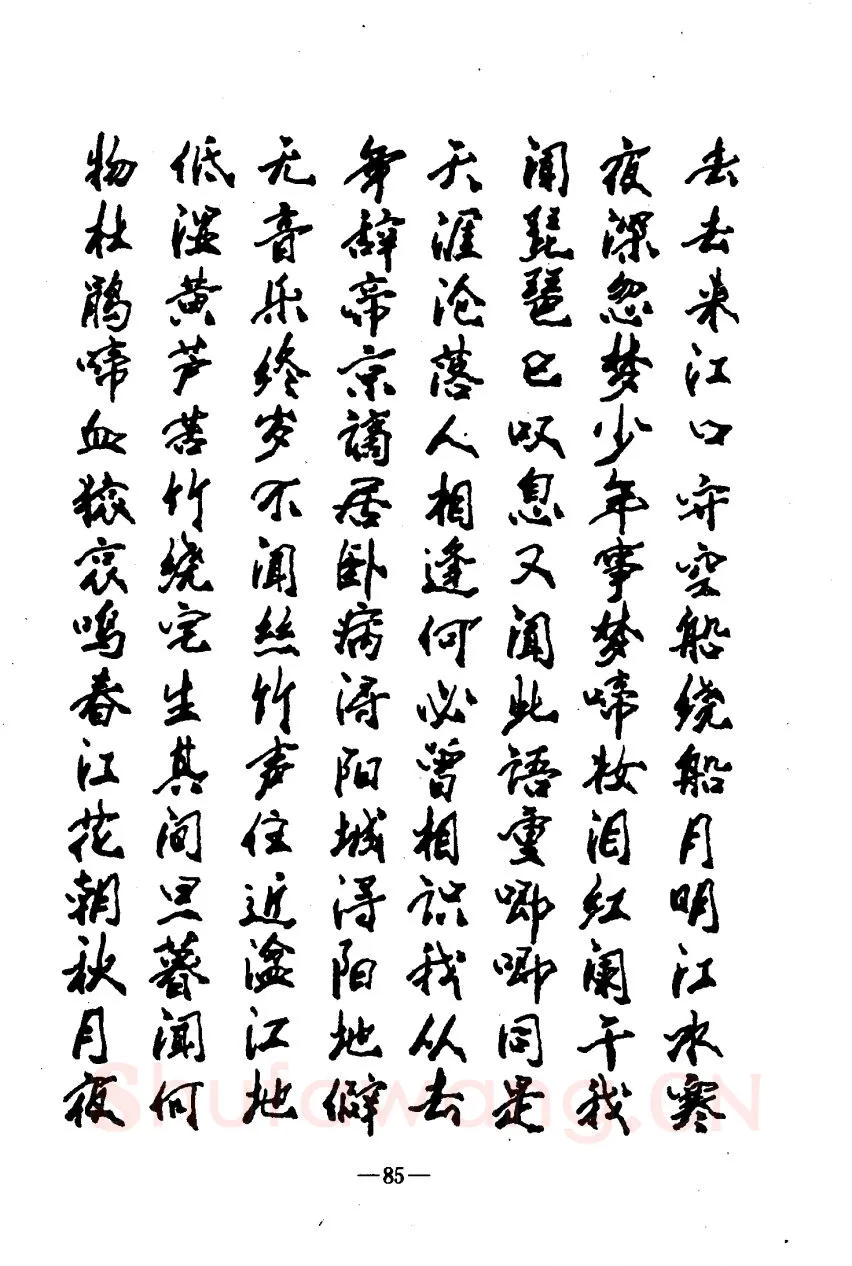 去去来江口守空船绕船月明江水寒
夜深忽梦少年事梦啼妆泪红阑干我
闻琵琶已叹息又闻此语重唧唧同是
天涯沦落人相逢何必曾相识我从去
年辞帝京谪居卧病浔阳城浔阳地僻
无音乐终岁不闻丝竹声住近湓江地
低湿黄芦苦竹绕宅生其间旦暮闻何
物杜鹃啼血猿哀鸣春江花朝秋月夜
—85—
Shufawang.CN